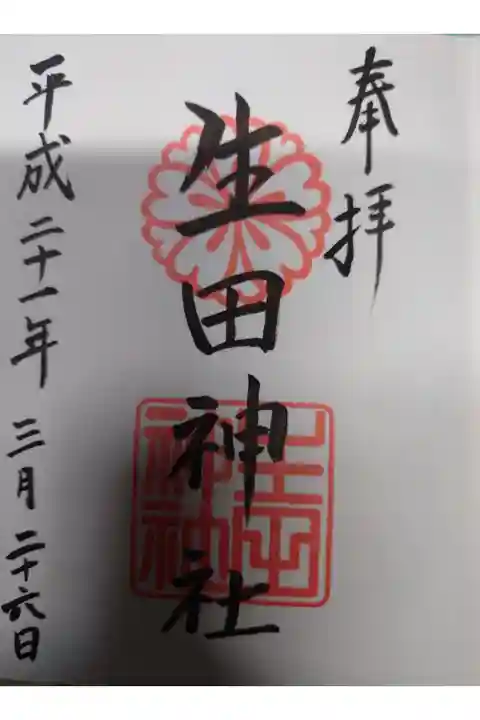 奉拝
生田神社
生田
神社
平成二十一年 三月 二十六日